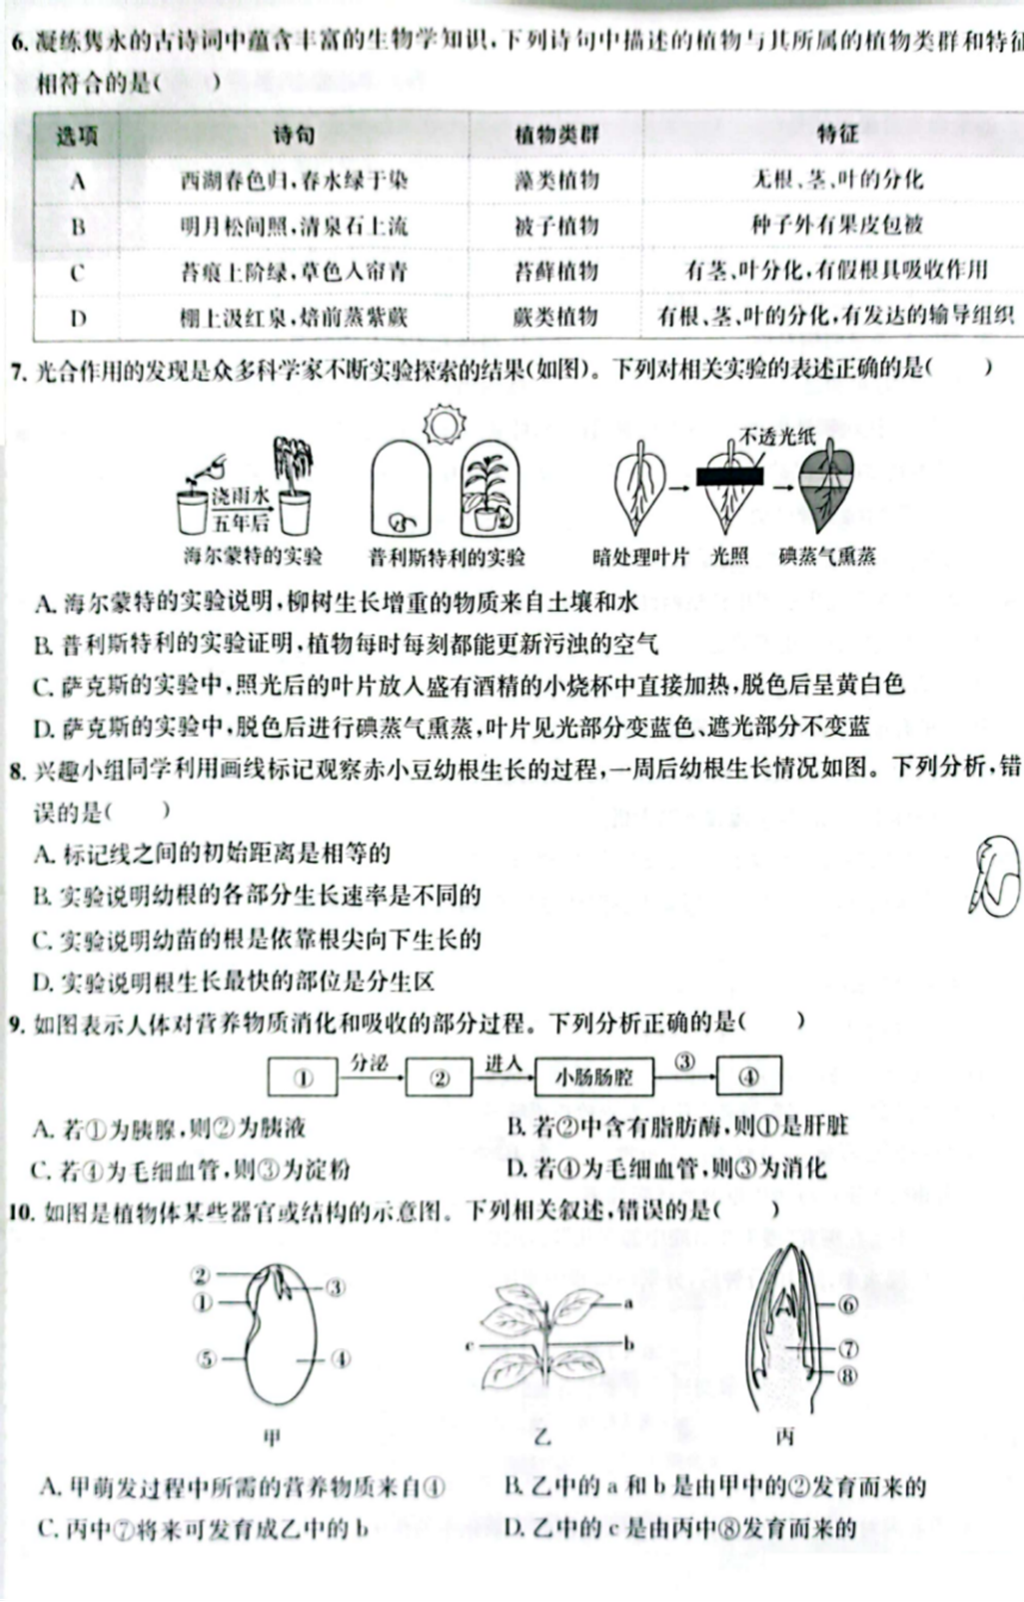 6. 凝练隽永的古诗词中蕴含丰富的生物学知识,下列诗句中描述的植物与其所属的植物类群和特征
相符合的是( )
选项 诗句 植物类群 特征
A 西湖春色归,春水绿于染 藻类植物 无根、茎、叶的分化
B 明月松间照,清泉石上流 被子植物 种子外有果皮包被
C 苔痕上阶绿,草色入帘青 苔藓植物 有茎、叶分化,有假根具吸收作用
D 棚上汲红泉,焙前蒸紫蕨 蕨类植物 有根、茎、叶的分化,有发达的输导组织
7. 光合作用的发现是众多科学家不断实验探索的结果(如图)。下列对相关实验的表述正确的是( )
不透光纸
浇雨水
五年后
海尔蒙特的实验 普利斯特利的实验 暗处理叶片 光照 碘蒸气熏蒸
A. 海尔蒙特的实验说明,柳树生长增重的物质来自土壤和水
B. 普利斯特利的实验证明,植物每时每刻都能更新污浊的空气
C. 萨克斯的实验中,照光后的叶片放入盛有酒精的小烧杯中直接加热,脱色后呈黄白色
D. 萨克斯的实验中,脱色后进行碘蒸气熏蒸,叶片见光部分变蓝色、遮光部分不变蓝
8. 兴趣小组同学利用画线标记观察赤小豆幼根生长的过程,一周后幼根生长情况如图。下列分析,错
误的是( )
A. 标记线之间的初始距离是相等的
B. 实验说明幼根的各部分生长速率是不同的
C. 实验说明幼苗的根是依靠根尖向下生长的
D. 实验说明根生长最快的部位是分生区
9. 如图表示人体对营养物质消化和吸收的部分过程。下列分析正确的是( )
① 分泌 ② 进入 小肠肠腔 ③ ④
A. 若①为胰腺,则②为胰液 B. 若②中含有脂肪酶,则①是肝脏
C. 若④为毛细血管,则③为淀粉 D. 若④为毛细血管,则③为消化
10. 如图是植物体某些器官或结构的示意图。下列相关叙述,错误的是( )
② ③
① a ⑥
c b ⑦
⑤ ④ ⑧
甲 乙 丙
A. 甲萌发过程中所需的营养物质来自④ B. 乙中的 a 和 b 是由甲中的②发育而来的
C. 丙中⑦将来可发育成乙中的 b D. 乙中的 c 是由丙中⑧发育而来的